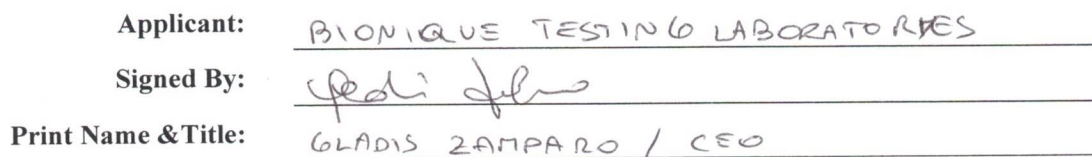 Applicant: BIONIQUE TESTING LABORATORIES
Signed By:
Print Name &Title: GLADIS ZAMPARO / CEO